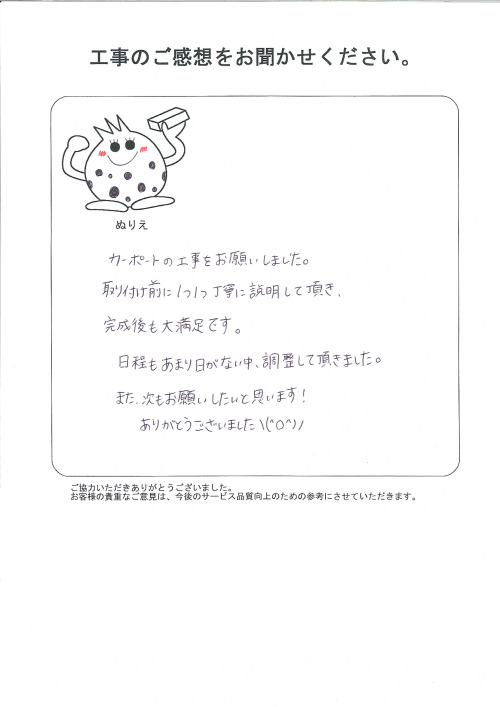 工事のご感想をお聞かせください。
ぬりえ
カーポートの工事をお願いしました。
取り付け前に1つ1つ丁寧に説明して頂き、
完成後も大満足です。
日程もあまり日がない中、調整して頂きました。
また、次もお願いしたいと思います！
ありがとうございました\(^O^)/
ご協力いただきありがとうございました。
お客様の貴重なご意見は、今後のサービス品質向上のための参考にさせていただきます。